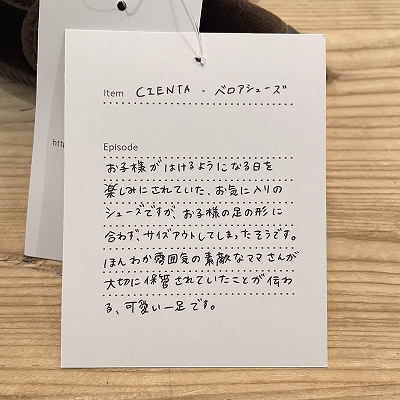 Item CIENTA - ベロアシューズ
Episode
お子様がはけるようになる日を
楽しみにされていた、お気に入りの
シューズですが、お子様の足の形に
合わず、サイズアウトしてしまったそうです。
ほんわか雰囲気の素敵なママさんが
大切に保管されていたことが伝わ
る、可愛い一足です。
htt